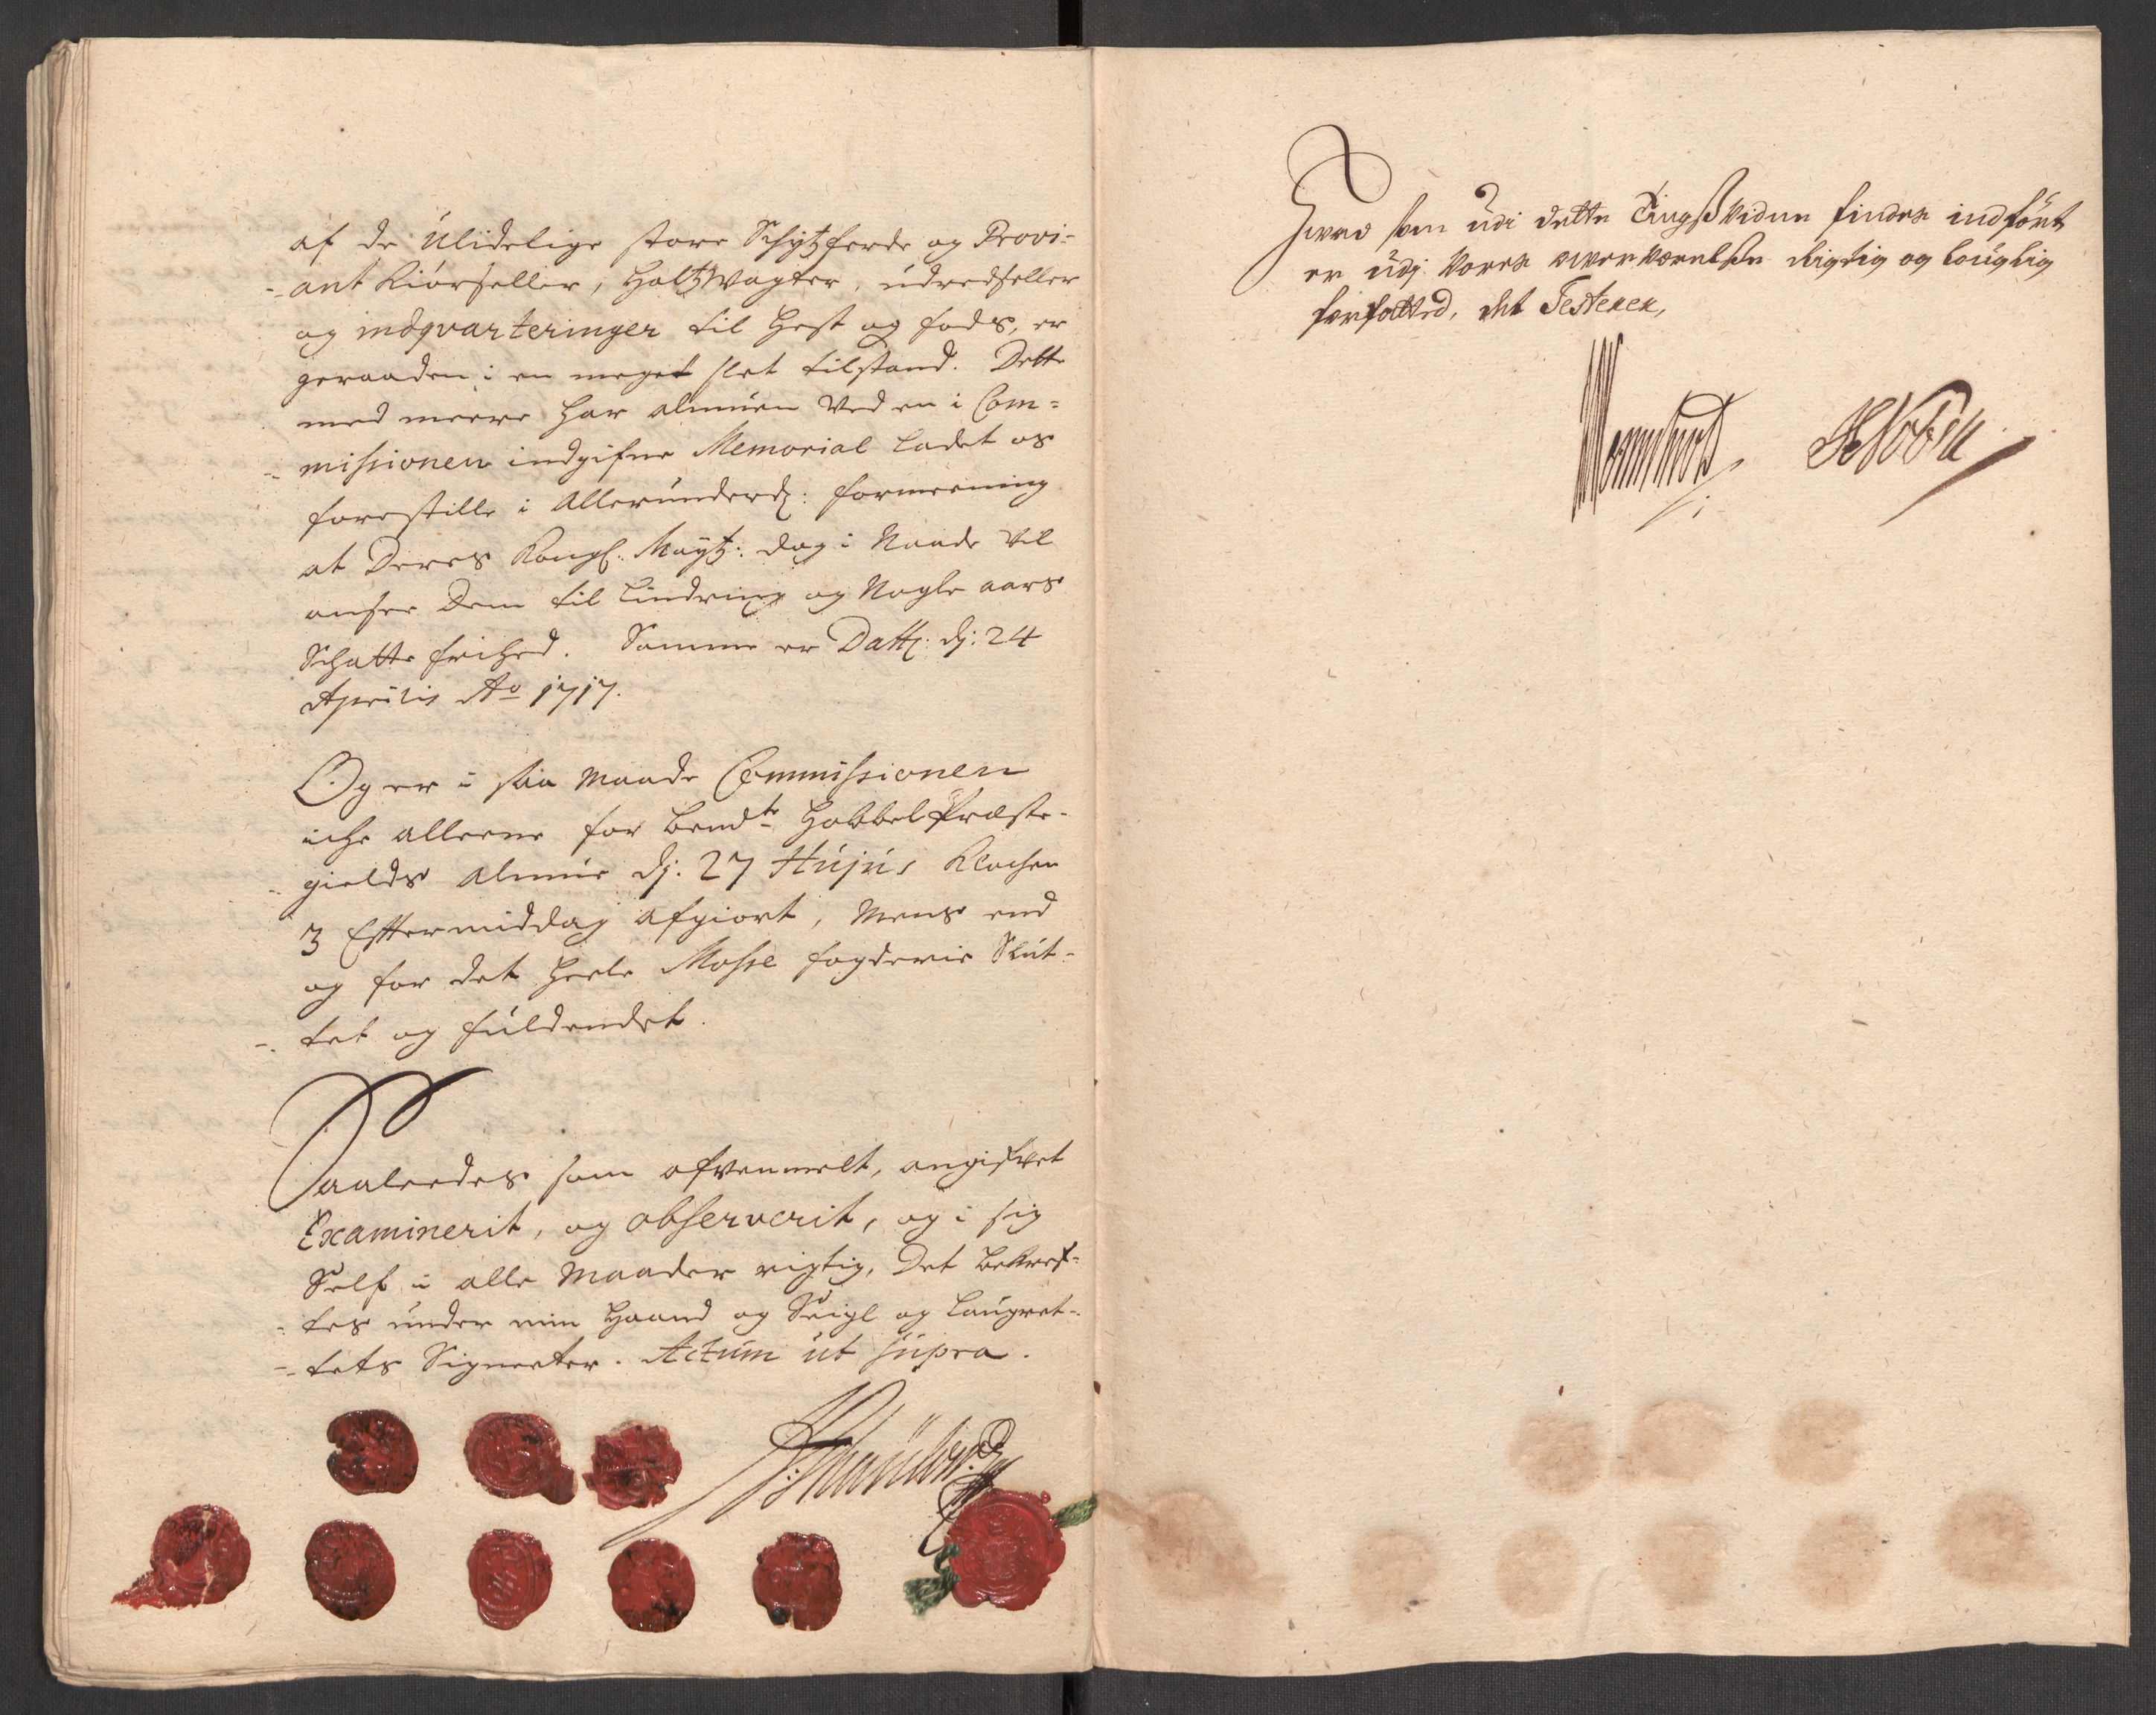 af de Ulidelige store Schytzferde og Provi-
-ant Kiørseller, Holtzwagter, udredseller
og indqvarteringer til Hest og fods, er
geraaden i en meget slet tilstand. Dette
med meere har almuen Ved en i Com=
missionen indgifne Memorial ladet os
forestille i Allerunderd: formeening
at Deres Kongl: Maytz: dog i Naade vil
ansee Dem til Lindring og Nogle aars
Schatte frihed. Samme er Datt: dj: 24
Aprilis Ao 1717.
Og er i saa maade Commissionen
iche alleene for bemte Hobbel Præste-
gields almue dj: 27 Hujus Klochen
3 Effermiddag afgiort, Mens end
og for det heele Mosse fogderie Slut-
-tet og fuldendet.
Saaleedes som ofvenmelt, angifvet
Examinerit, og observerit, og i sig
Self i alle Maader rigtig, Det bekref-
-tes under min Haand og Seigl og Laugret-
-tets Signeter. Actum ut supra.
Hvad som udi dette Tingsvidne findes indført
er udj Vores overværelse rigtig og louglig
forfatted, det Testerer,